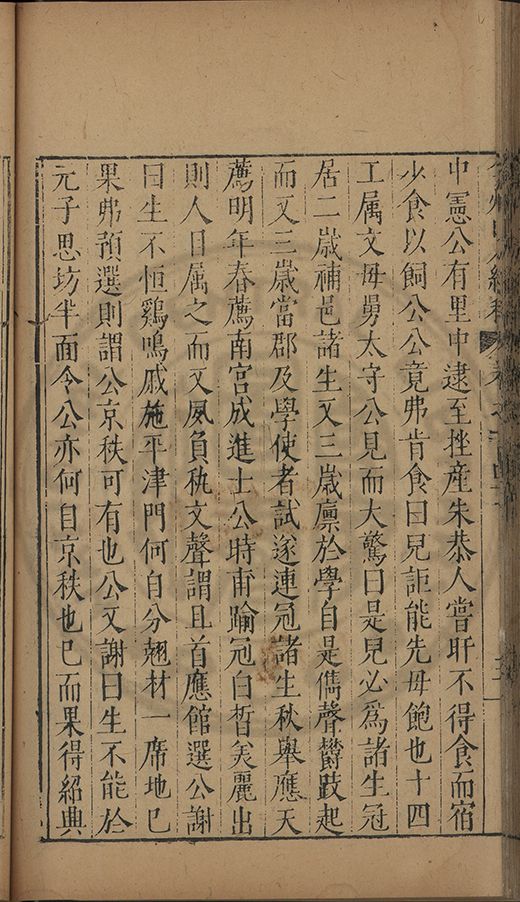 中憲公有里中逮至挫産朱恭人嘗旰不得食而宿
少食以飼公公竟弗肯食曰兒詎能先母飽也十四
工属文母舅太守公見而大驚曰是兒必為諸生冠
居二歳補邑諸生又三歳廪於學自是儁聲欝跂起
而又三歳當郡及學使者試遂連冠諸生秋舉應天
薦明年春薦南宮成進士公時甫踰冠白皙美麗出
則人目属之而又夙負秇文聲謂且首應館選公謝
曰生不恒鷄鳴戚施平津門何自分翹材一席地已
果弗預選則謂公京秩可有也公又謝曰生不能於
元子思坊半面令公亦何自京秩也已而果得紹興